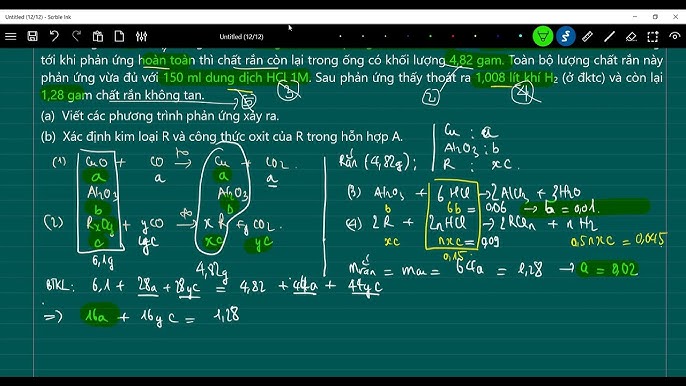 Untitled (12/12) - Scrble Ink
Untitled (12/12)
tới khi phản ứng hoàn toàn thì chất rắn còn lại trong ống có khối lượng 4,82 gam. Toàn bộ lượng chất rắn này
phản ứng vừa đủ với 150 ml dung dịch HCl 1M. Sau phản ứng thấy thoát ra 1,008 lít khí H₂ (ở đktc) và còn lại
1,28 gam chất rắn không tan.
5 3 2 4
(a) Viết các phương trình phản ứng xảy ra.
(b) Xác định kim loại R và công thức oxit của R trong hỗn hợp A.
(1) CuO + CO →t° Cu + CO2
a a a a
Al2O3 Al2O3
b b
(2) RxOy + yCO →t° xR + yCO2
c yc xc yc
6,1g 4,82g
BTKL: 6,1 + 28a + 28yc = 4,82 + 44a + 44yc
=> 16a + 16yc = 1,28
Rắn (4,82g): Cu : a
Al2O3 : b
R : xc
(3) Al2O3 + 6HCl → 2AlCl3 + 3H2O
b 6b = 0,06 → b = 0,01.
(4) 2R + 2nHCl → 2RCln + nH2
xc nxc = 0,09 0,5nxc = 0,045
0,15
m rắn = mCu = 64a = 1,28 → a = 0,02